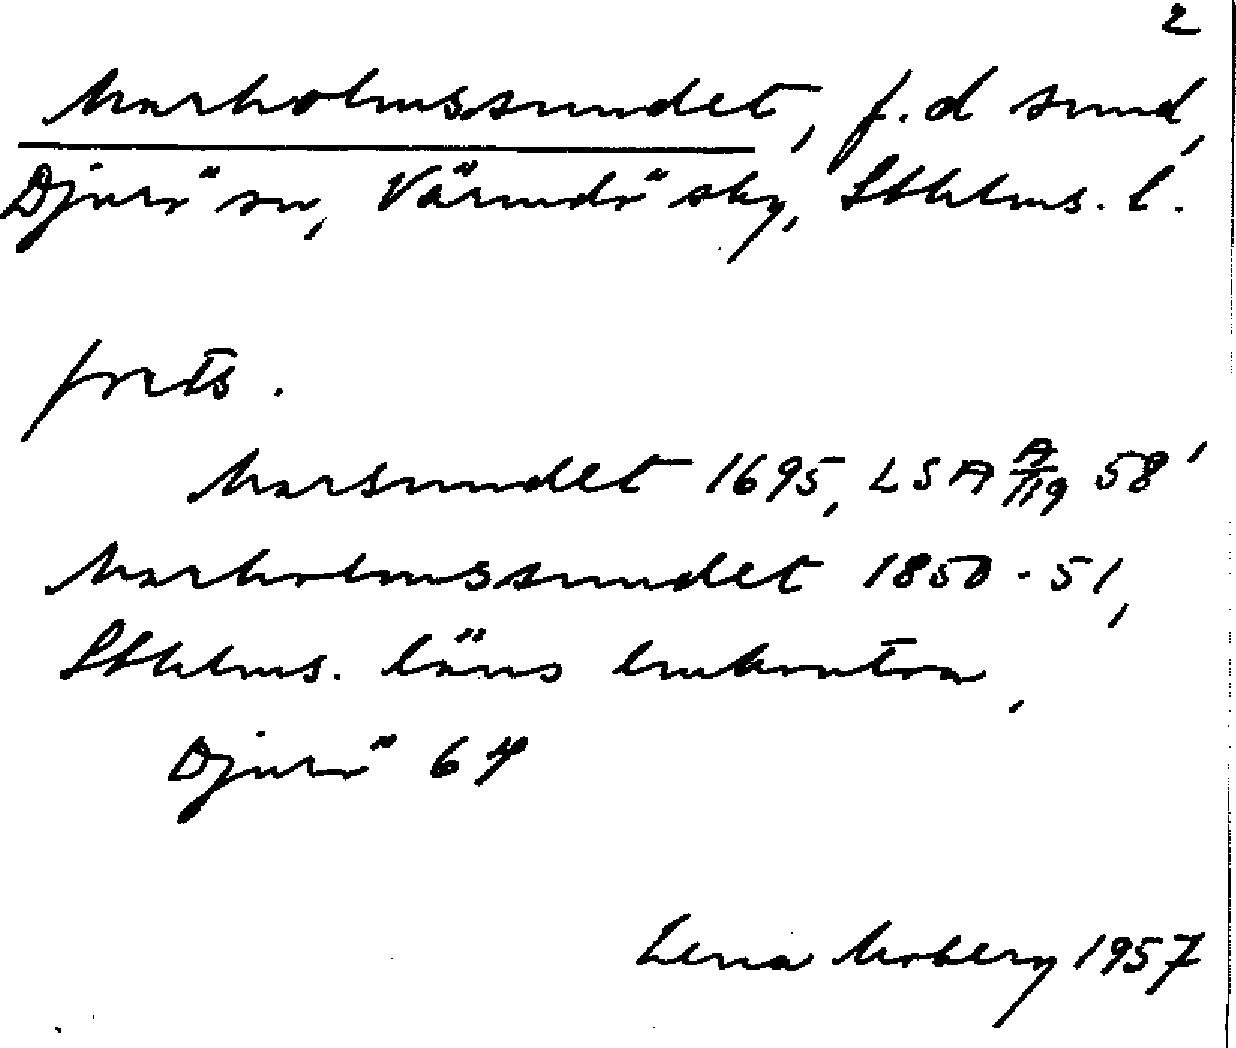 2
Marholmssundet, f.d sund,
Djurö sn, Värmdö sky, Sthlms. l.
forts.
Marsundet 1695, LSA A/119 58'
Marholmssundet 1850-51,
Sthlms. läns
Djurö 64
Lena Moberg 1957